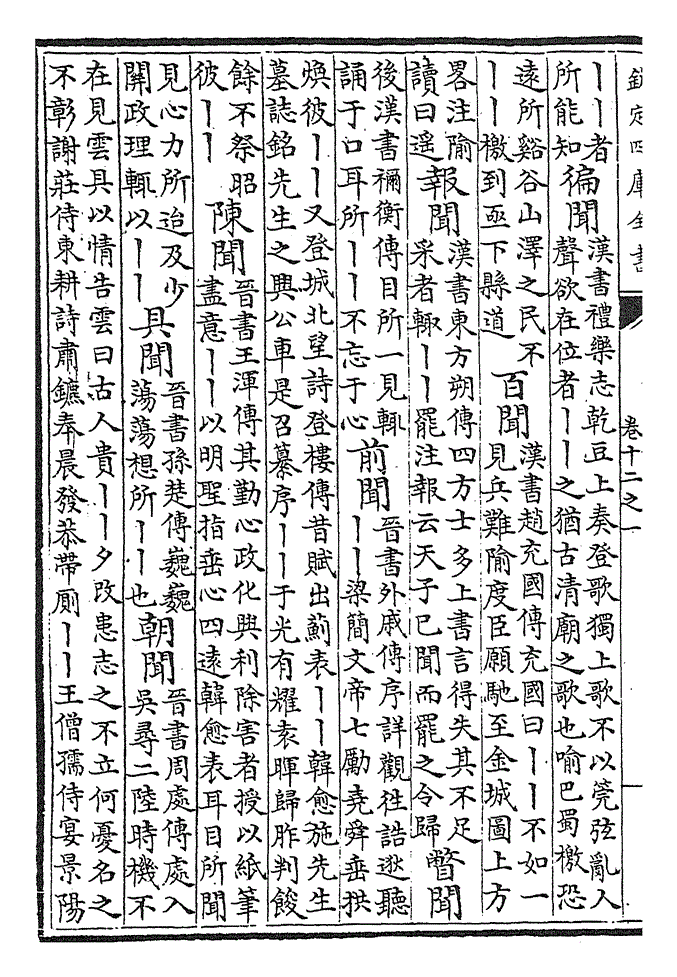 欽定四庫全書 卷十二之一 一
丨丨者所能知徧聞漢書禮樂志乾豆上奏登歌獨上歌不以筦弦亂人聲欲在位者丨丨之猶古清廟之歌也喻巴蜀檄恐
遠所谿谷山澤之民不丨丨檄到亟下縣道百聞漢書趙充國傳充國曰丨丨不如一見兵難隃度臣願馳至金城圖上方
畧注隃讀曰遥報聞漢書東方朔傳四方士多上書言得失其不足采者輙丨丨罷注報云天子已聞而罷之令歸瞥聞
後漢書禰衡傳目所一見輙誦于口耳所丨丨不忘于心前聞晉書外戚傳序詳觀往誥逖聽丨丨梁簡文帝七勵堯舜垂拱
煥彼丨丨又登城北望詩登樓傳昔賦出薊表丨丨韓愈施先生墓誌銘先生之興公車是召纂序丨丨于光有耀袁暉歸胙判餕
餘不祭昭彼丨丨陳聞晉書王渾傳其勤心政化興利除害者授以紙筆盡意丨丨以明聖指垂心四遠韓愈表耳目所聞
見心力所迨及少關政理輙以丨丨具聞晉書孫楚傳巍巍蕩蕩想所丨丨也朝聞晉書周處傳處入吳尋二陸時機不
在見雲具以情告雲曰古人貴丨丨夕改患志之不立何憂名之不彰謝莊侍東耕詩肅鑣奉晨發恭帶厠丨丨王僧孺侍宴景陽